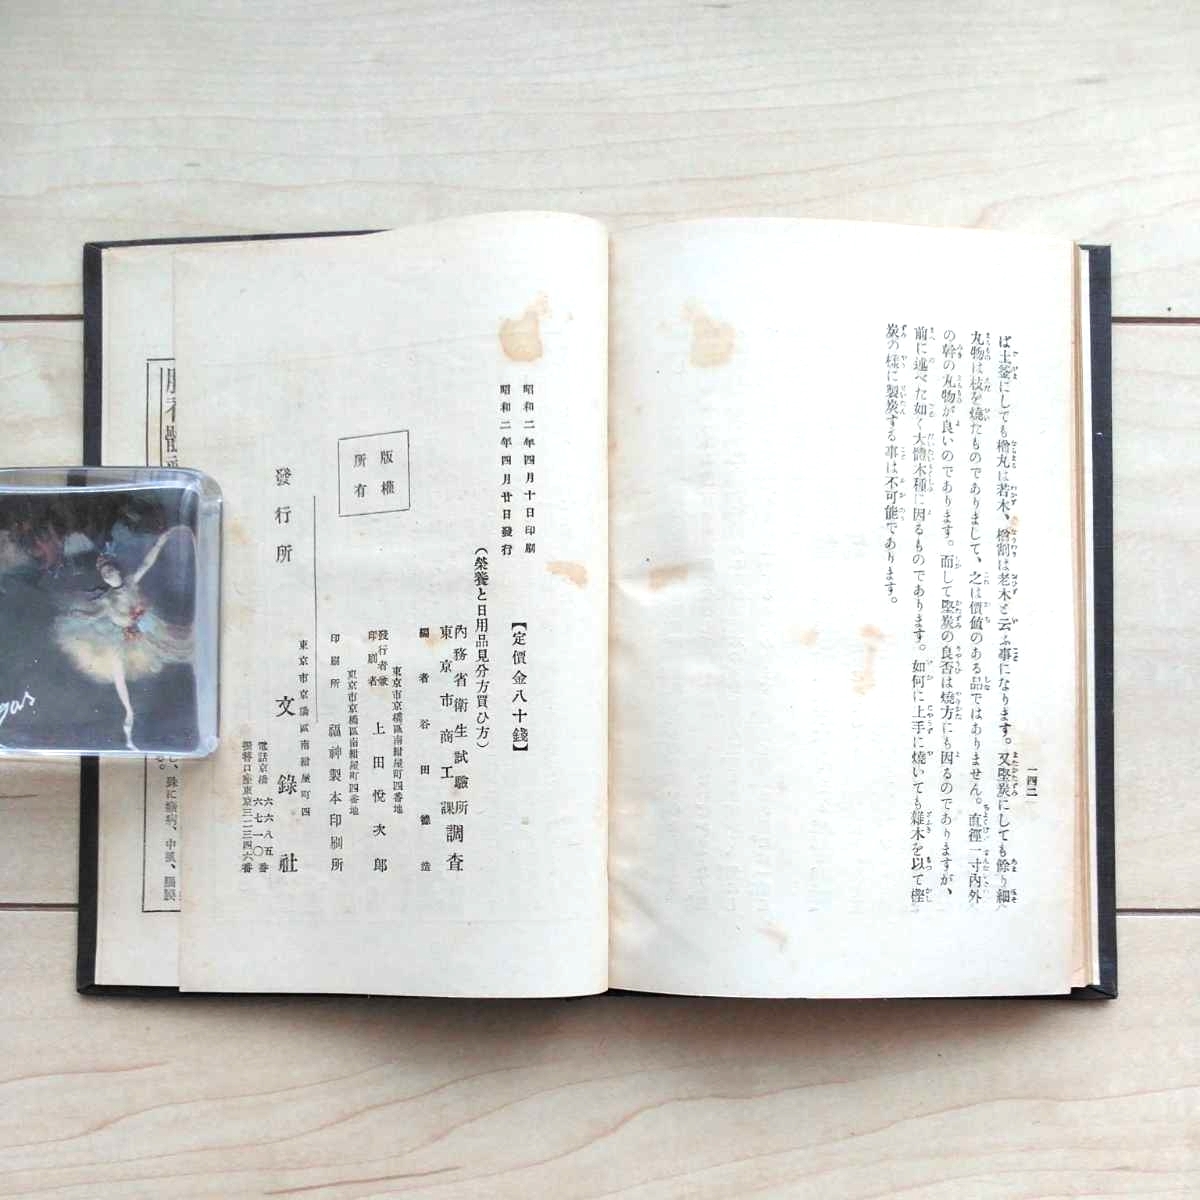 一四二
ば土釜にしても楢丸は若木、楢割は老木と云ふ事になります。又堅炭にしても餘り細
丸物は枝を燒たものでありまして、之は價値のある品ではありません。直徑一寸內外
の幹の丸物が良いのであります。而して堅炭の良否は燒方にも因るのでありますが、
前に述べた如く大體木種に因るものであります。如何に上手に燒いても雜木を以て樫
炭の樣に製炭する事は不可能であります。
昭和二年四月十日印刷
昭和二年四月廿日發行
【定價金八十錢】
(榮養と日用品見分方買ひ方)
內務省衞生試驗所
東京市商工課
調査
編者 谷田德造
東京市京橋區南紺屋町四番地
發行者兼
印刷者
上田悅次郞
東京市京橋區南紺屋町四番地
印刷所 福神製本印刷所
版權
所有
東京市京橋區南紺屋町四
發行所 文錄社
電話京橋 六六八五番
六七一〇番
振替口座東京三二三四六番
中風、腦膜
gas